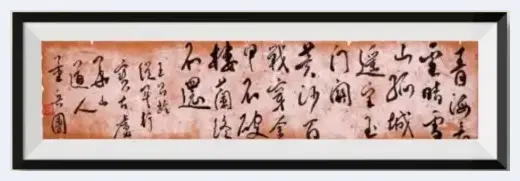 青海長
雲暗雪
山孤城
遙望玉
門關
黃沙百
戰穿金
甲不破
樓蘭終
不還
王昌齡
從軍行
山
道人